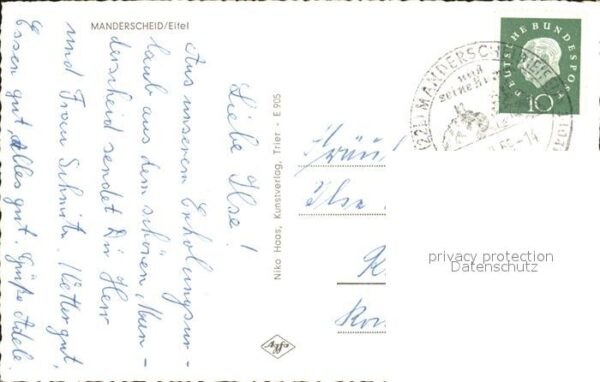 MANDERSCHEID/Eifel
Liebe Ilse!
Aus unserem Erholungsur-
laub aus dem schönen Man-
derscheid sendet Dir Herr
und Frau Schmitz. Wetter gut,
Essen gut, Alles gut. Grüße Adele.
Niko Haas, Kunstverlag, Trier - E 905
Fräu
Ilse
K
DEUTSCHE BUNDESPOST
10
(22b) MANDERSCHEID
und
seine
-14
privacy protection
Datenschutz